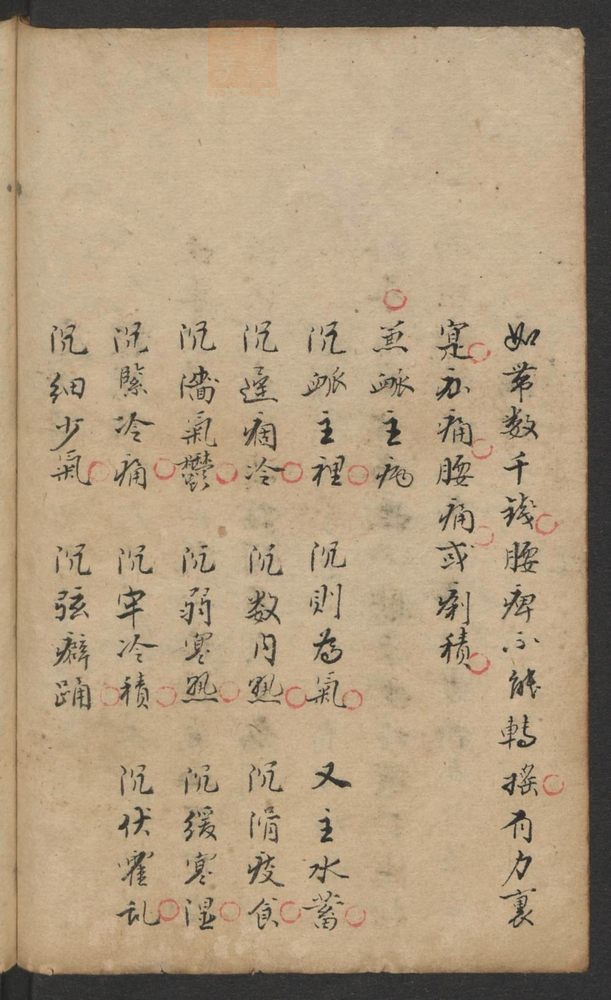 如带数千錢腰痺不能轉搖有力裏
寔亦痛腰痛或痢積
兼脉主病
沉脉主裡 沉則為氣 又主水蓄
沉遲痼冷 沉数内熱 沉滑痰食
沉濇氣鬱 沉弱寒熱 沉緩寒湿
沉緊冷痛 沉牢冷積 沉伏霍乱
沉細少氣 沉弦癖踊